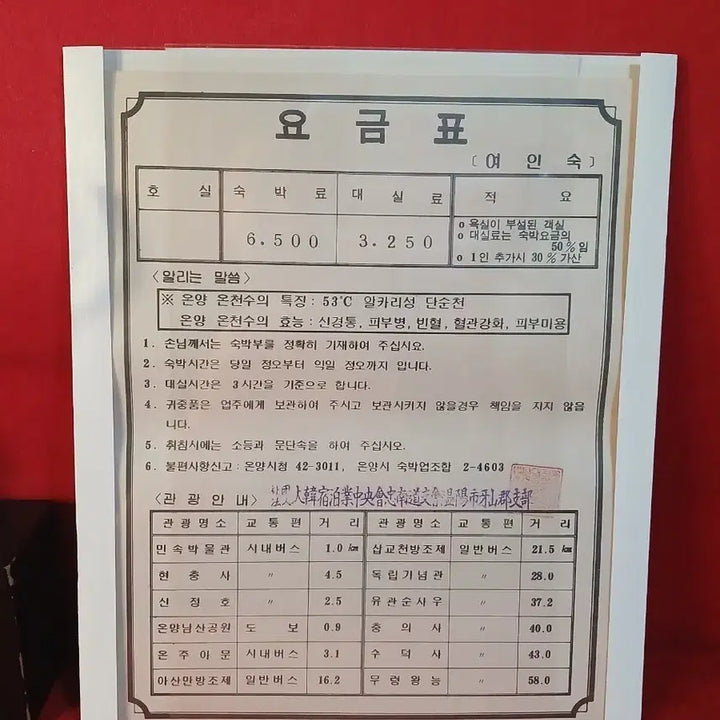 요 금 표
〔여 인 숙〕
호 실 숙 박 료 대 실 료 적 요
6.500 3.250
o 욕실이 부설된 객실
o 대실료는 숙박요금의
50%임
o 1인 추가시 30%가산
〈알리는 말씀〉
※ 온양 온천수의 특징 : 53℃ 알카리성 단순천
온양 온천수의 효능 : 신경통, 피부병, 빈혈, 혈관강화, 피부미용
1. 손님께서는 숙박부를 정확히 기재하여 주십시요.
2. 숙박시간은 당일 정오부터 익일 정오까지 입니다.
3. 대실시간은 3시간을 기준으로 합니다.
4. 귀중품은 업주에게 보관하여 주시고 보관시키지 않을경우 책임을 지지 않읍
니다.
5. 취침시에는 소등과 문단속을 하여 주십시오.
6. 불편사항신고 : 온양시청 42-3011, 온양시 숙박업조합 2-4603
〈관 광 안 내〉 韓宿泊業中央會忠南道支會溫陽市牙山郡支部
관광명소 교통편 거 리 관광명소 교통편 거 리
민속박물관 시내버스 1.0㎞ 삽교천방조제 일반버스 21.5㎞
현 충 사 〃 4.5 독립기념관 〃 28.0
신 정 호 〃 2.5 유관순사우 〃 37.2
온양남산공원 도 보 0.9 충 의 사 〃 40.0
온 주 아 문 시내버스 3.1 수 덕 사 〃 43.0
아산만방조제 일반버스 16.2 무 령 왕 능 〃 58.0